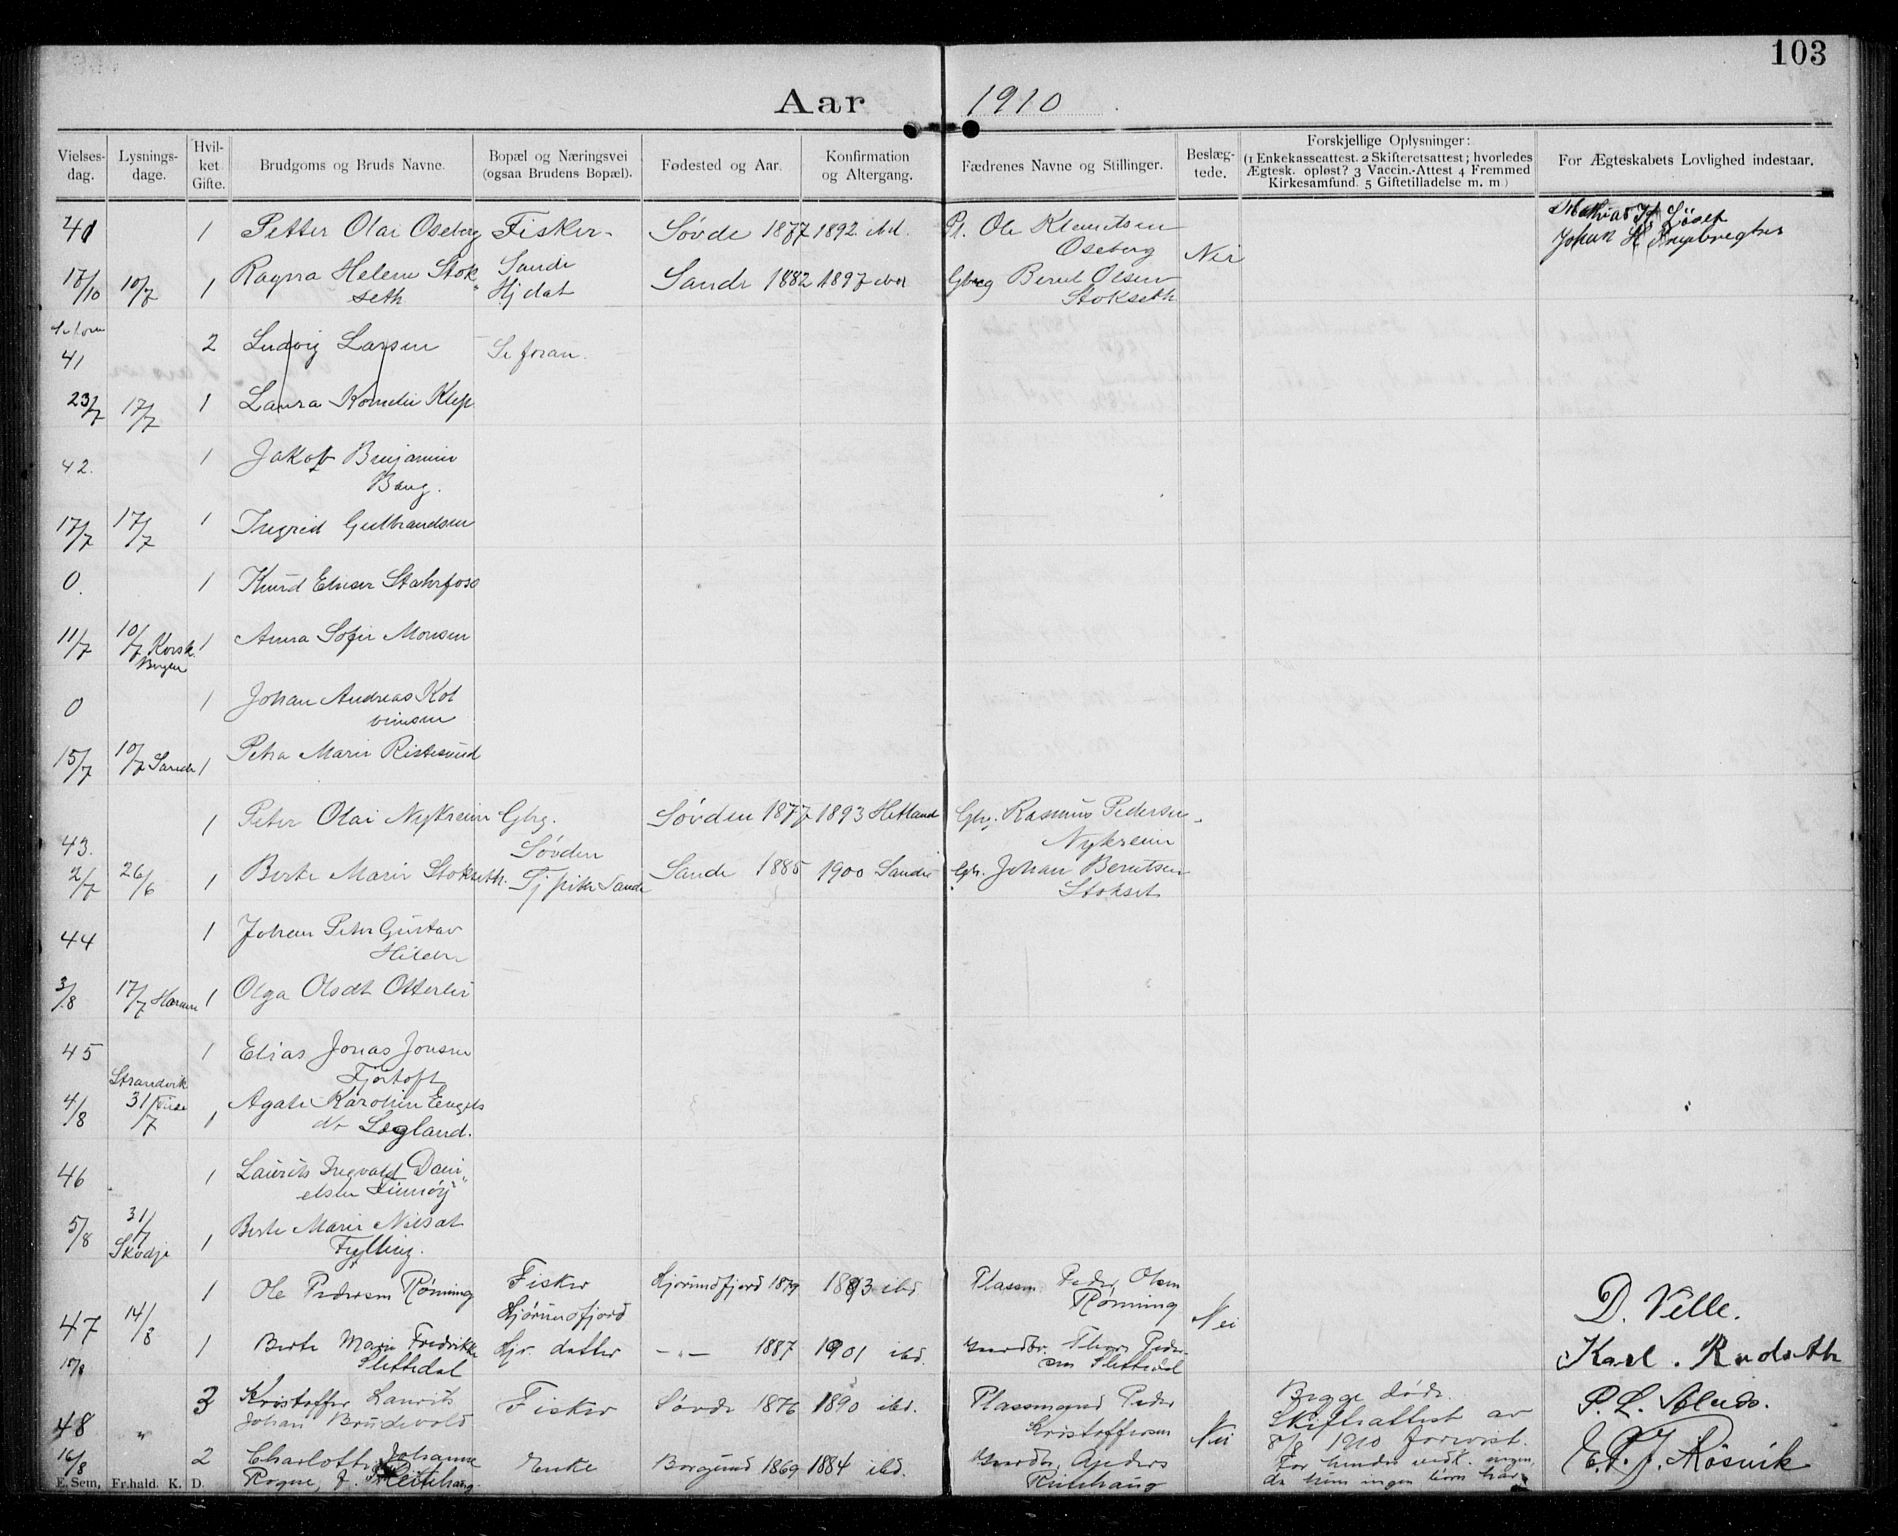 103
Aar 1910
Vielses-dag.
Lysnings-dage.
Hvil-ket Gifte.
Brudgoms og Bruds Navne.
Bopæl og Næringsvei (ogsaa Brudens Bopæl).
Fødested og Aar.
Konfirmation og Altergang.
Fædrenes Navne og Stillinger.
Beslæg-tede.
Forskjellige Oplysninger:
(1 Enkekasseattest. 2 Skifteretsattest; hvorledes
Ægtesk. opløst? 3 Vaccin.-Attest 4 Fremmed
Kirkesamfund. 5 Giftetilladelse m. m)
For Ægteskabets Lovlighed indestaar.
41 1 Petter Olai Oseberg Fisker- Søvde 1877 1892 ibd. Pl. Ole Klemetsen Mathias H Løset
Oseberg Nei Johan H
17/10 10/7 1 Ragna Helene Stok Sande Sande 1882 1897 Gbrg Bernt Olsen
seth Hj dat Stokseth
2 Ludvig Larsen Se foran.
41
23/7 17/7 1 Laura Kornelie Klep
42. 1 Jakob Benjamin
Bang.
17/7 17/7 1 Ingrid Gulbrandsen
0. 1 Knud Elieser Stahrfoss
11/7 10/7 Korsk. 1 Anna Sofie Monsen
Bergen
0 1 Johan Andreas Kol
vinsen
15/7 10/7 Sande 1 Petra Marie Ristesund
1 Peter Olai Nykreim Gbrg. Søvden 1877 1893 Hetland Gbrg. Rasmus Pedersen
43. Søvden Nykreim
2/7 26/6 1 Berte Marie Stokseth. Tj pike Sande Sande 1885 1900 Sande Gbr. Johan Berntsen
Stokset
44 1 Johan Peter Gustav
Hildre
3/8 17/7 Haram 1 Olga Olsdt Otterlei
45 1 Elias Jonas Jonsen
Fjørtoft
Strandvik
4/8 31/7 Fuse 1 Agate Karoline Engels
dt Løgland.
46 1 Laurits Ingvald Dani
elsen Finnøy
5/8 31/7 1 Berte Marie Nilsdt
Skodje Fylling.
1 Ole Pedersen Rønning Fisker Hjørundfjord 1879 1893 ibd Plassm. Peder Olsen
47 14/8 Hjørundfjord Rønning Nei D. Velle.
1 Berte Marie Fredrikke Hjv. datter —„— 1887 1901 ibd. Gardbr. Thore Peder-
15/8 Slettedal sen Slettedal Karl. Rudseth
3 Kristoffer Laurits Fisker Søvde 1876 1890 ibd. Plassmand Peder Begge døde.
48 „ Johan Brudevold Kristoffersen Nei Skifteattest av P. L. Alnes.
16/8 2 Charlotte Johanne Enke Borgund 1869 1884 ibd. Gardbr. Anders 8/8 1910 forevist.
Rogne, f. Reitehaug. Reitehaug For hendes vedk. ingen, E. P. J. Røsvik
da hun ingen barn har
E. Sem, Fr.hald. K. D.